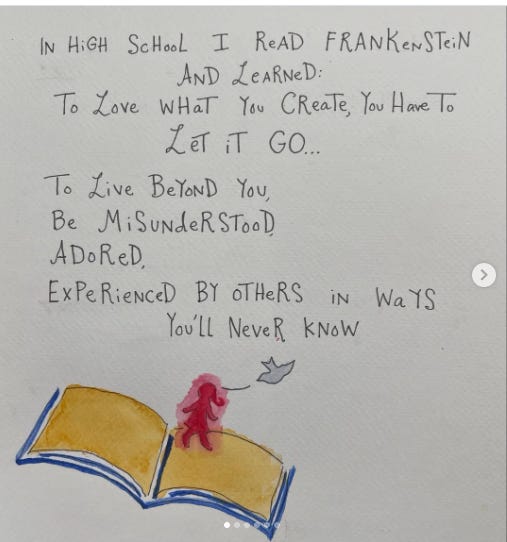 IN HiGH ScHooL I ReAD FRANKeNSTeiN
AND LeARNeD:
To Love WHaT You CReaTe, You Have To
LeT iT GO...
To Live BeYoND You,
Be MiSUNdeRSTooD,
ADoReD,
ExPeRieNceD BY oTHeRS iN WaYS
You'll NeveR KNoW